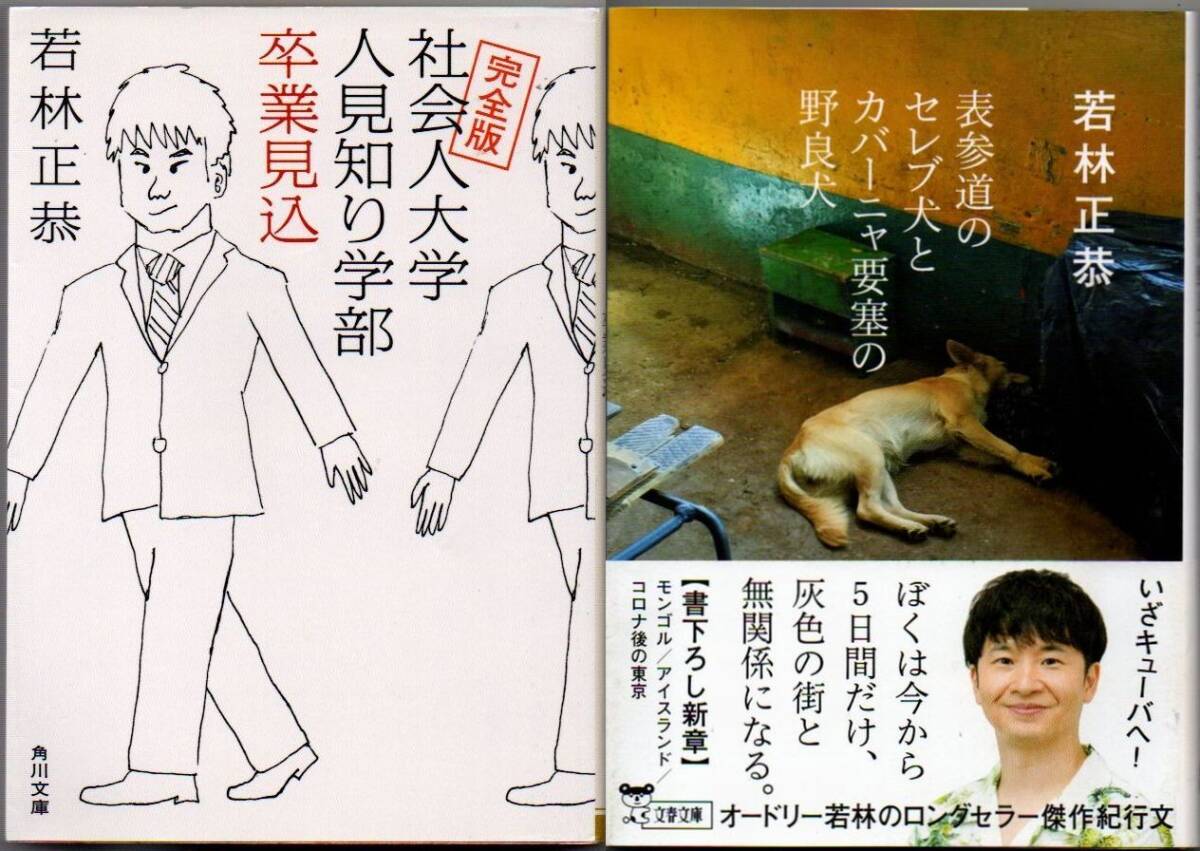 完全版
社会人大学
人見知り学部
卒業見込
若林正恭
角川文庫
若林正恭
表参道の
セレブ犬と
カバーニャ要塞の
野良犬
いざキューバへ!
ぼくは今から
5日間だけ、
灰色の街と
無関係になる。
【書下ろし新章】
モンゴル/アイスランド/
コロナ後の東京
文春文庫
オードリー若林のロングセラー傑作紀行文